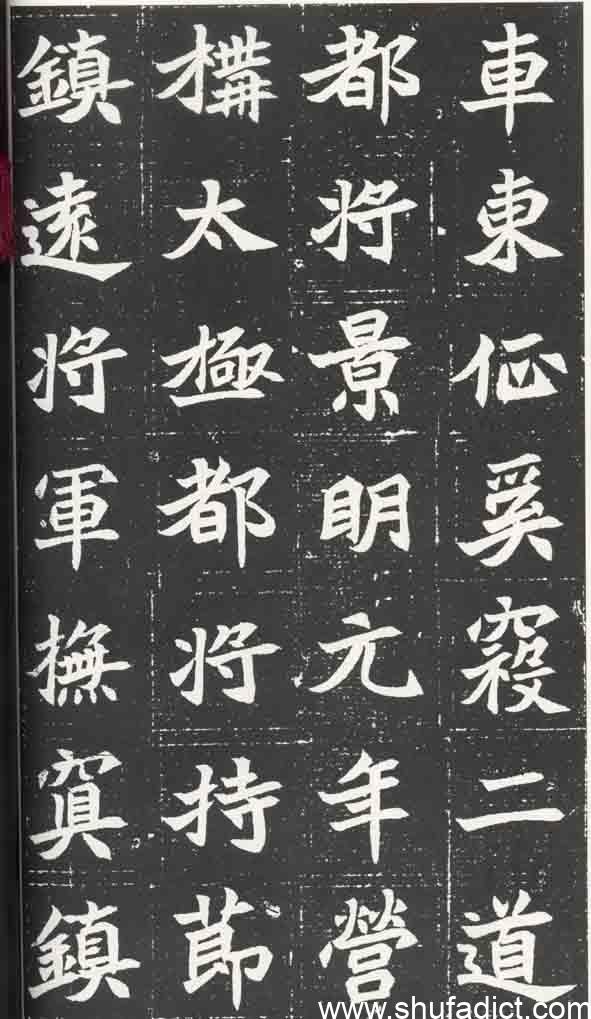 車東佂奚寇二道
都将景眀元年營
構太極都将持莭
鎮遠将軍撫㝠鎮
www.shufadict.com